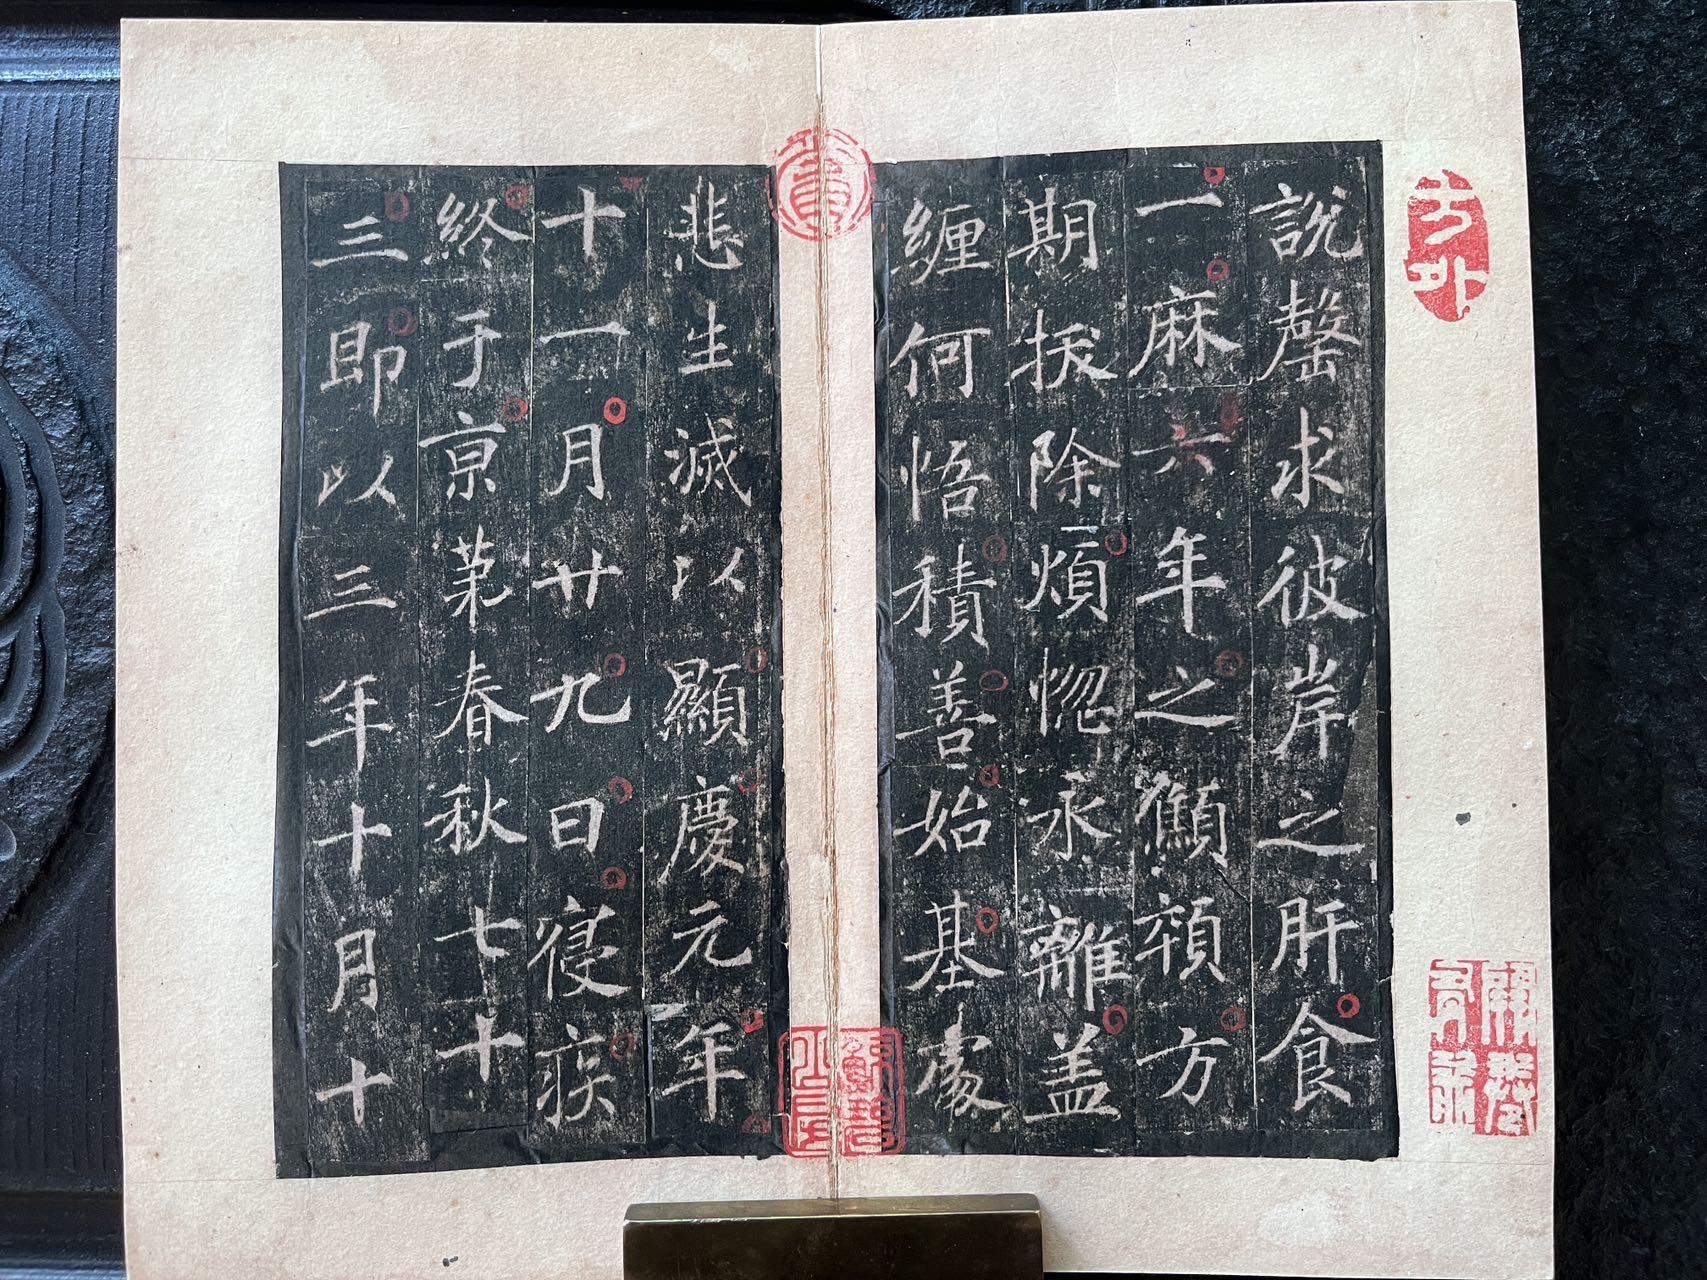 說罄求彼岸之肝食
一麻六年之顑頷方
期拔除煩惚永離盖
纏何悟積善始基處
悲生滅以顯慶元年
十一月廿九日寑疾
終于京苐春秋七十
三即以三年十月十
方外